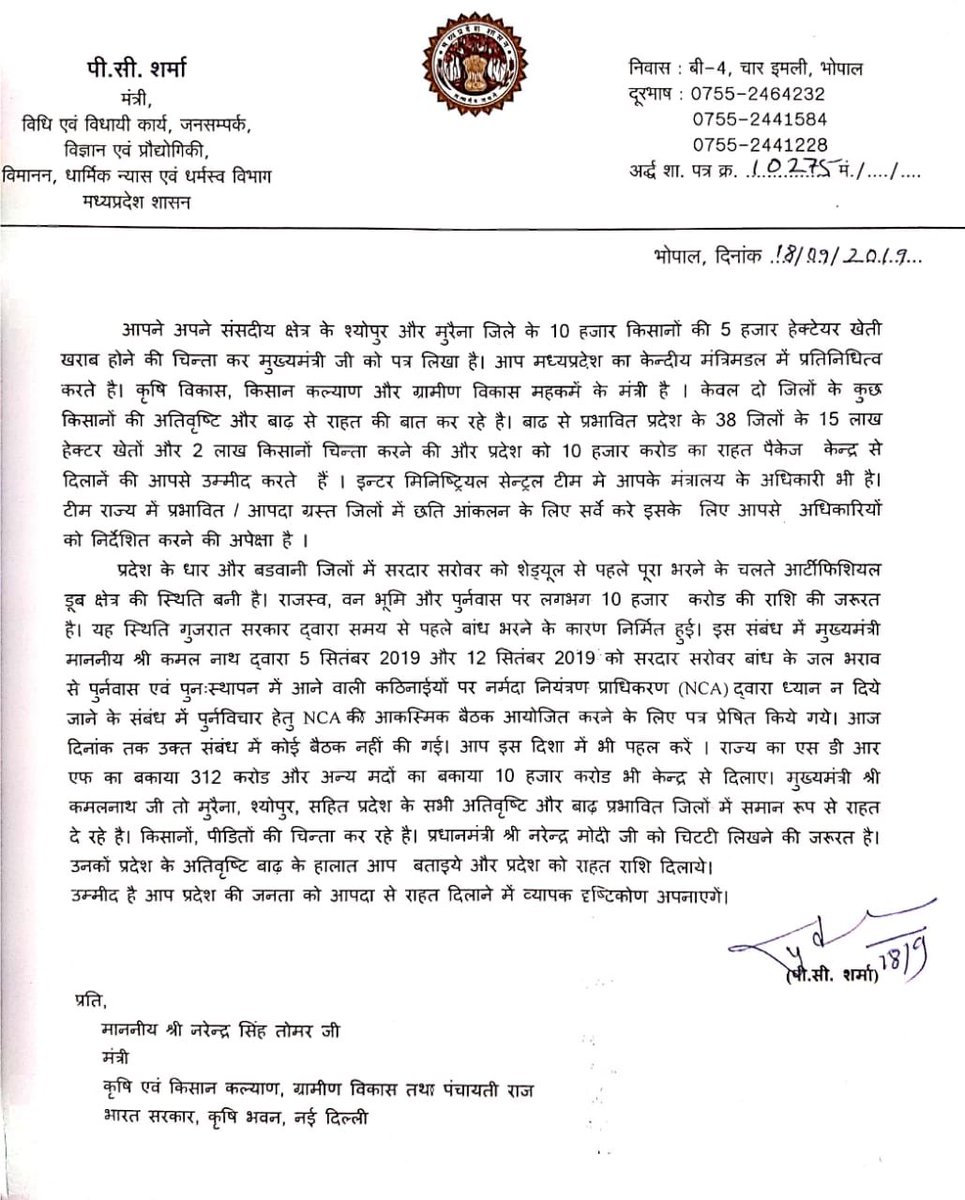 पी.सी. शर्मा
मंत्री,
विधि एवं विधायी कार्य, जनसम्पर्क,
विज्ञान एवं प्रौद्योगिकी,
विमानन, धार्मिक न्यास एवं धर्मस्व विभाग
मध्यप्रदेश शासन
निवास : बी-4, चार इमली, भोपाल
दूरभाष : 0755-2464232
0755-2441584
0755-2441228
अर्द्ध शा. पत्र क्र. .10275 मं./..../....
भोपाल, दिनांक .18/09/2019...
आपने अपने संसदीय क्षेत्र के श्योपुर और मुरैना जिले के 10 हजार किसानों की 5 हजार हेक्टेयर खेती
खराब होने की चिन्ता कर मुख्यमंत्री जी को पत्र लिखा है। आप मध्यप्रदेश का केन्दीय मंत्रिमडल में प्रतिनिधित्व
करते है। कृषि विकास, किसान कल्याण और ग्रामीण विकास महकमें के मंत्री है । केवल दो जिलों के कुछ
किसानों की अतिवृष्टि और बाढ़ से राहत की बात कर रहे है। बाढ से प्रभावित प्रदेश के 38 जिलों के 15 लाख
हेक्टर खेतों और 2 लाख किसानों चिन्ता करने की और प्रदेश को 10 हजार करोड का राहत पैकेज केन्द्र से
दिलानें की आपसे उम्मीद करते हैं । इन्टर मिनिष्ट्रियल सेन्ट्रल टीम मे आपके मंत्रालय के अधिकारी भी है।
टीम राज्य में प्रभावित / आपदा ग्रस्त जिलों में छति आंकलन के लिए सर्वे करे इसके लिए आपसे अधिकारियों
को निर्देशित करने की अपेक्षा है ।
प्रदेश के धार और बडवानी जिलों में सरदार सरोवर को शेड्यूल से पहले पूरा भरने के चलते आर्टीफिशियल
डूब क्षेत्र की स्थिति बनी है। राजस्व, वन भूमि और पुर्नवास पर लगभग 10 हजार करोड की राशि की जरूरत
है। यह स्थिति गुजरात सरकार द्वारा समय से पहले बांध भरने के कारण निर्मित हुई। इस संबंध में मुख्यमंत्री
माननीय श्री कमल नाथ द्वारा 5 सितंबर 2019 और 12 सितंबर 2019 को सरदार सरोवर बांध के जल भराव
से पुर्नवास एवं पुनःस्थापन में आने वाली कठिनाईयों पर नर्मदा नियंत्रण प्राधिकरण (NCA) द्वारा ध्यान न दिये
जाने के संबंध में पुर्नविचार हेतु NCA की आकस्मिक बैठक आयोजित करने के लिए पत्र प्रेषित किये गये। आज
दिनांक तक उक्त संबंध में कोई बैठक नहीं की गई। आप इस दिशा में भी पहल करें । राज्य का एस डी आर
एफ का बकाया 312 करोड और अन्य मदों का बकाया 10 हजार करोड भी केन्द्र से दिलाए। मुख्यमंत्री श्री
कमलनाथ जी तो मुरैना, श्योपुर, सहित प्रदेश के सभी अतिवृष्टि और बाढ़ प्रभावित जिलों में समान रूप से राहत
दे रहे है। किसानों, पीडितों की चिन्ता कर रहे है। प्रधानमंत्री श्री नरेन्द्र मोदी जी को चिटटी लिखने की जरूरत है।
उनकों प्रदेश के अतिवृष्टि बाढ़ के हालात आप बताइये और प्रदेश को राहत राशि दिलाये।
उम्मीद है आप प्रदेश की जनता को आपदा से राहत दिलाने में व्यापक दृष्टिकोण अपनाएगें।
18/9
(पी.सी. शर्मा)
प्रति,
माननीय श्री नरेन्द्र सिंह तोमर जी
मंत्री
कृषि एवं किसान कल्याण, ग्रामीण विकास तथा पंचायती राज
भारत सरकार, कृषि भवन, नई दिल्ली